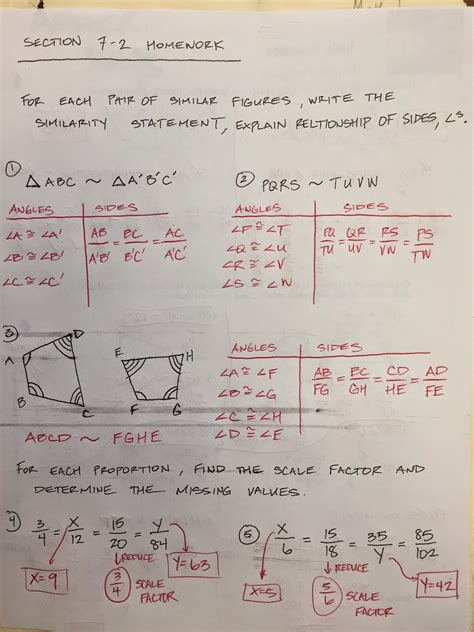 SECTION 7-2 HOMEWORK
FOR EACH PAIR OF SIMILAR FIGURES, WRITE THE
SIMILARITY STATEMENT, EXPLAIN RELTIONSHIP OF SIDES, ∠S.
① △ABC ~ △A'B'C'
ANGLES SIDES
∠A ≅ ∠A' AB/A'B' = BC/B'C' = AC/A'C'
∠B ≅ ∠B'
∠C ≅ ∠C'
② PQRS ~ TUVW
ANGLES SIDES
∠P ≅ ∠T PQ/TU = QR/UV = RS/VW = PS/TW
∠Q ≅ ∠U
∠R ≅ ∠V
∠S ≅ ∠W
③
A
B
C
D
E
F
G
H
ABCD ~ FGHE
ANGLES SIDES
∠A ≅ ∠F AB/FG = BC/GH = CD/HE = AD/FE
∠B ≅ ∠G
∠C ≅ ∠H
∠D ≅ ∠E
FOR EACH PROPORTION, FIND THE SCALE FACTOR AND
DETERMINE THE MISSING VALUES.
④ 3/4 = X/12 = 15/20 = Y/84
↓REDUCE
X=9
3/4 SCALE
FACTOR
Y=63
⑤ X/6 = 15/18 = 35/Y = 85/102
↓REDUCE
X=5
5/6 SCALE
FACTOR
Y=42